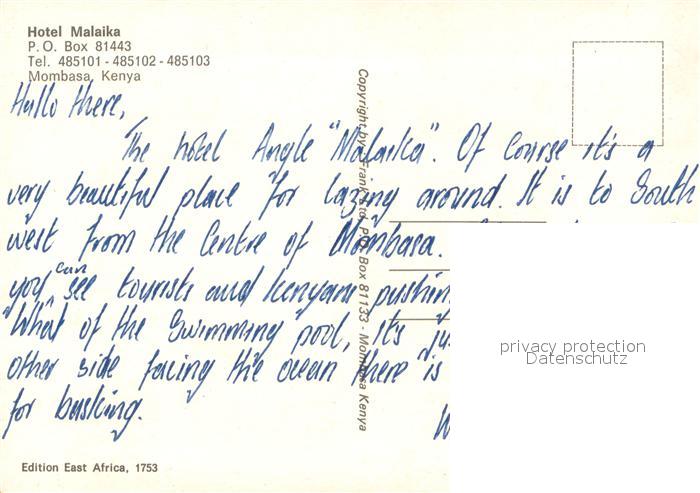 Hotel Malaika
P.O. Box 81443
Tel. 485101 - 485102 - 485103
Mombasa, Kenya
Hallo there,
The hotel Angle "Malaika". Of Course it's a
very beautiful place for lazing around. It is to South
west from the Centre of Mombasa.
you can see tourists and Kenyans pushin
What of the Swimming pool, it's
other side facing the ocean there is
for basking.
Copyright by Frank Ltd. P.O. Box 81133 - Mombasa Kenya
privacy protection
Datenschutz
Edition East Africa, 1753